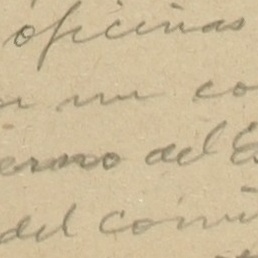 oficinas
un co
erno del E
del comi